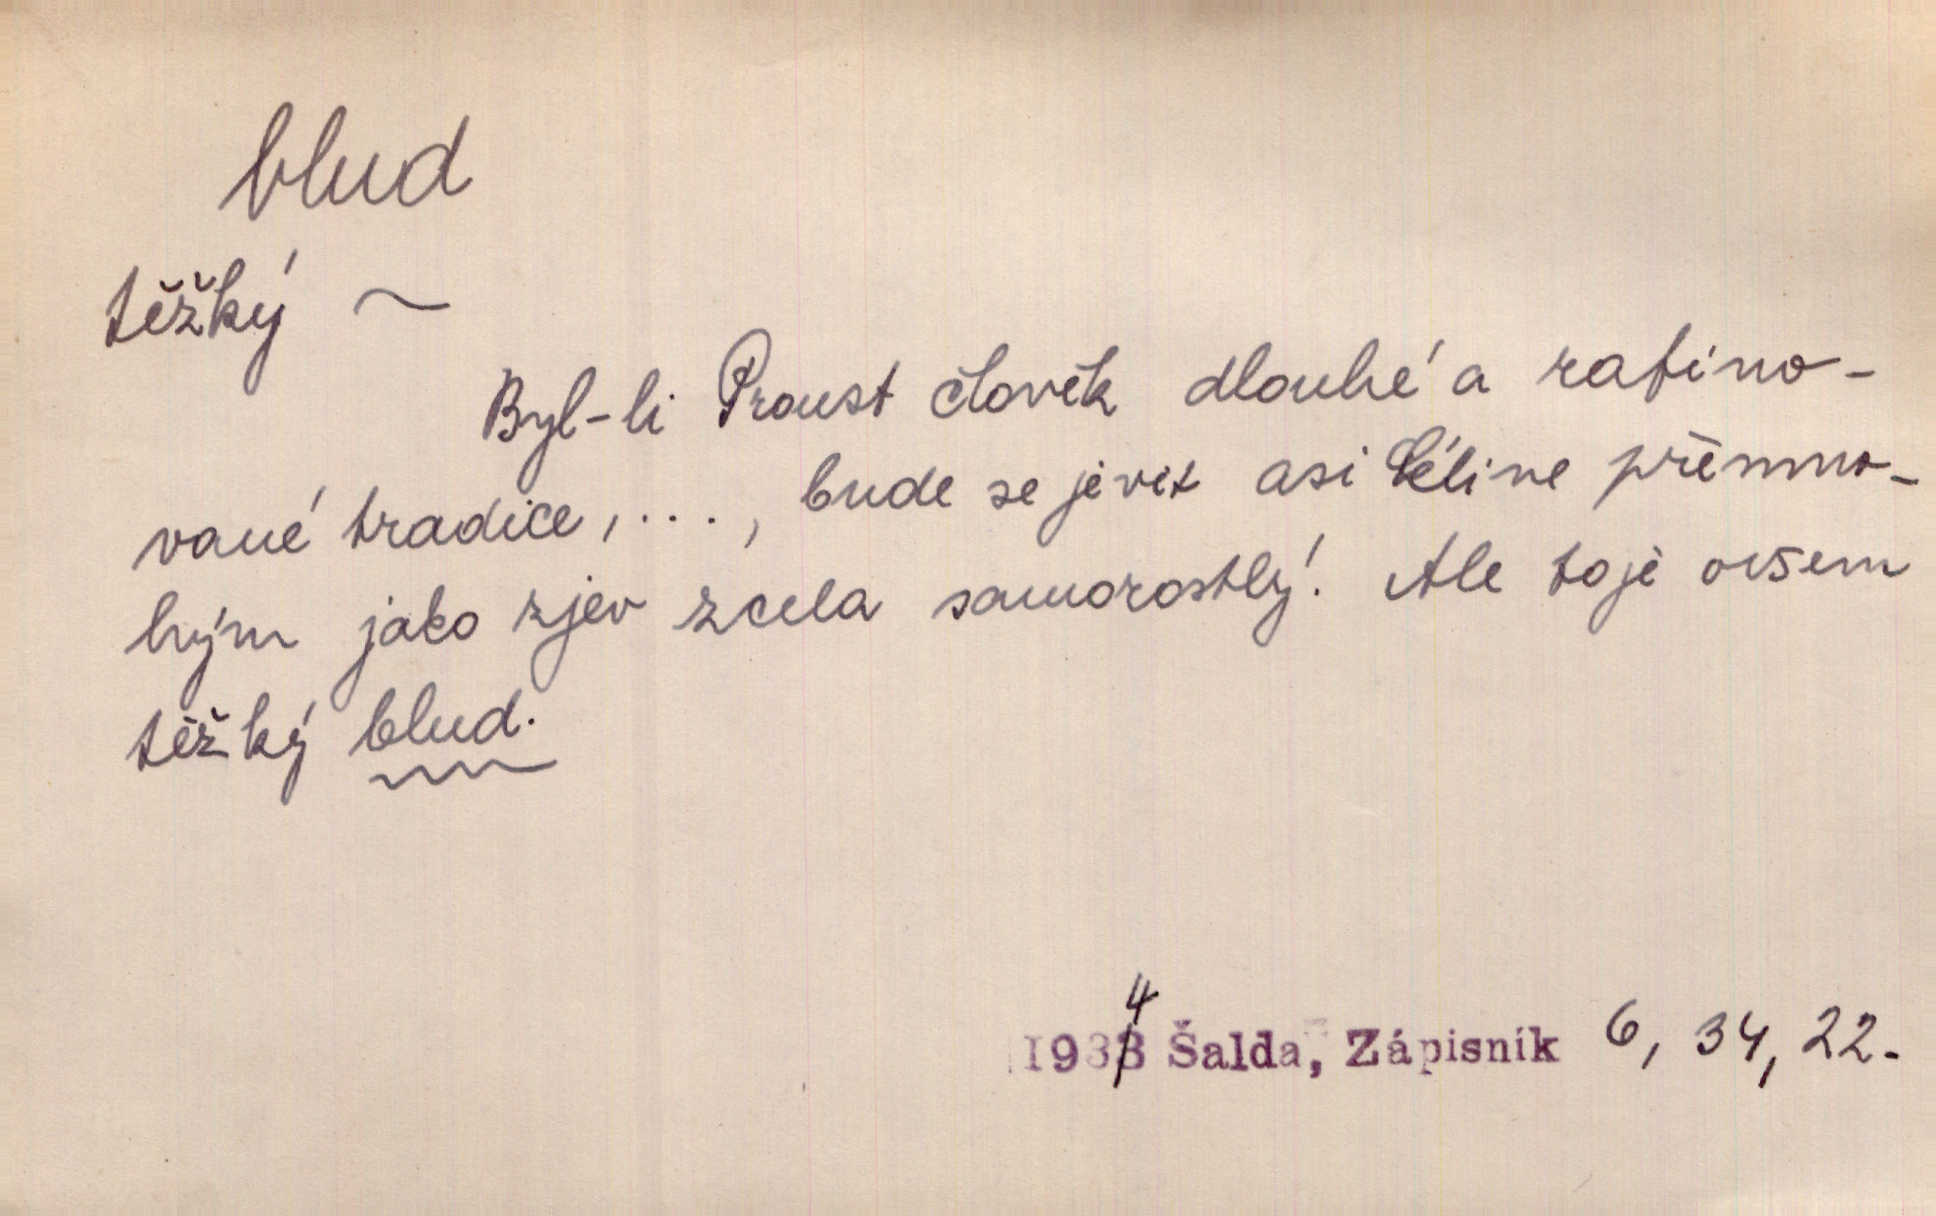 blud
těžký ~
Byl-li Proust člověk dlouhé a rafino-
vané tradice, ..., bude se jevit asi Céline přemno-
hým jako zjev zcela samorostlý. Ale to je ovšem
těžký blud.
1934 Šalda, Zápisník 6, 34, 22.